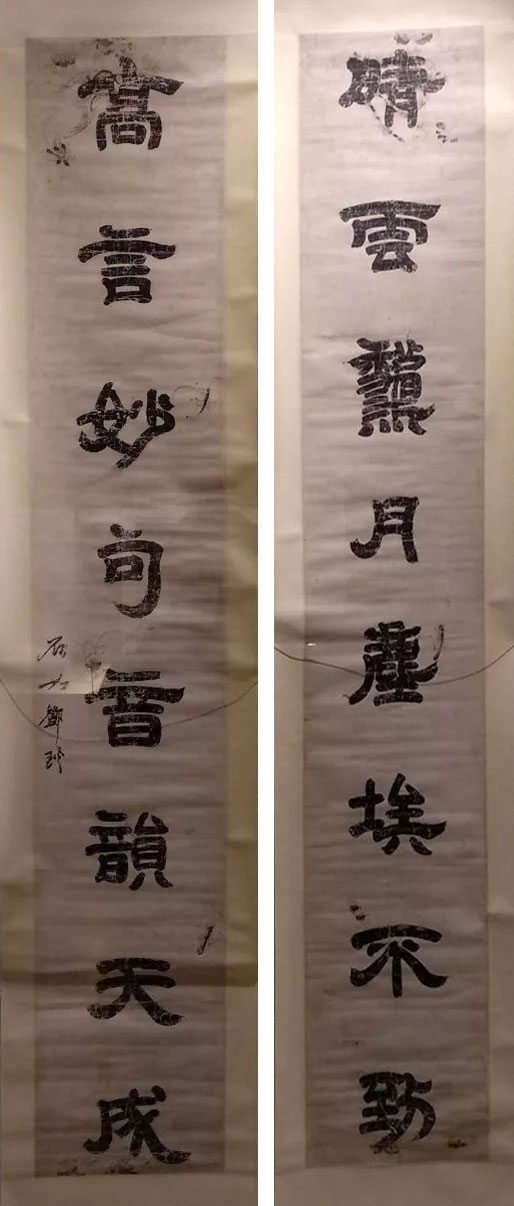 晴雲秋月塵埃不到
高言妙句音韻天成
石如鄧琰